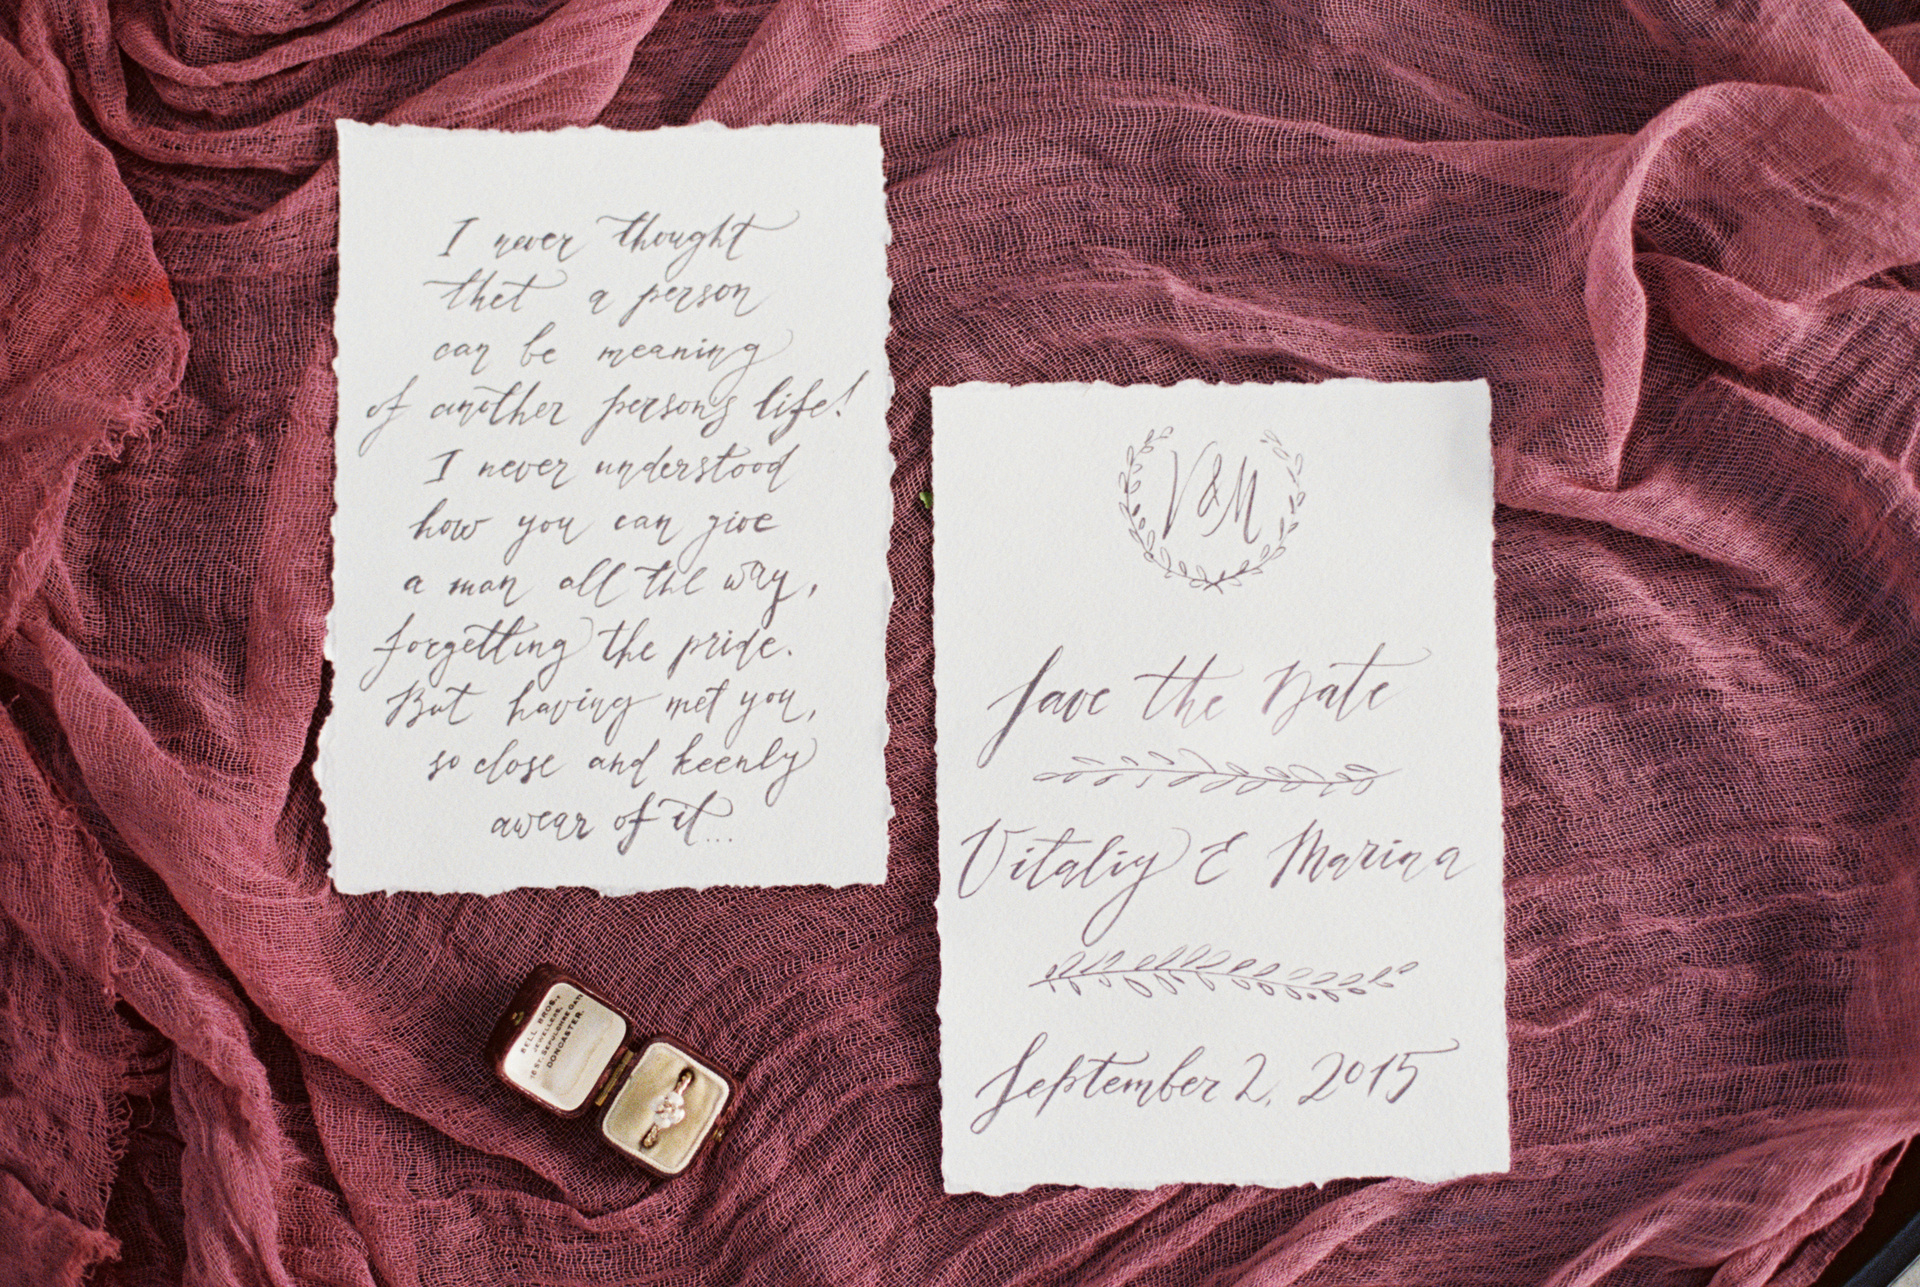 I never thought
thet a person
can be meaning
of another person's life!
I never understood
how you can give
a man all the way,
forgetting the pride.
But having met you,
so close and keenly
awear of it...
V&M
Save the Date
Vitaliy & Marina
September 2, 2015
BELL BROS.,
JEWELLERS,
ST. SEPULCHRE GATE
DONCASTER.